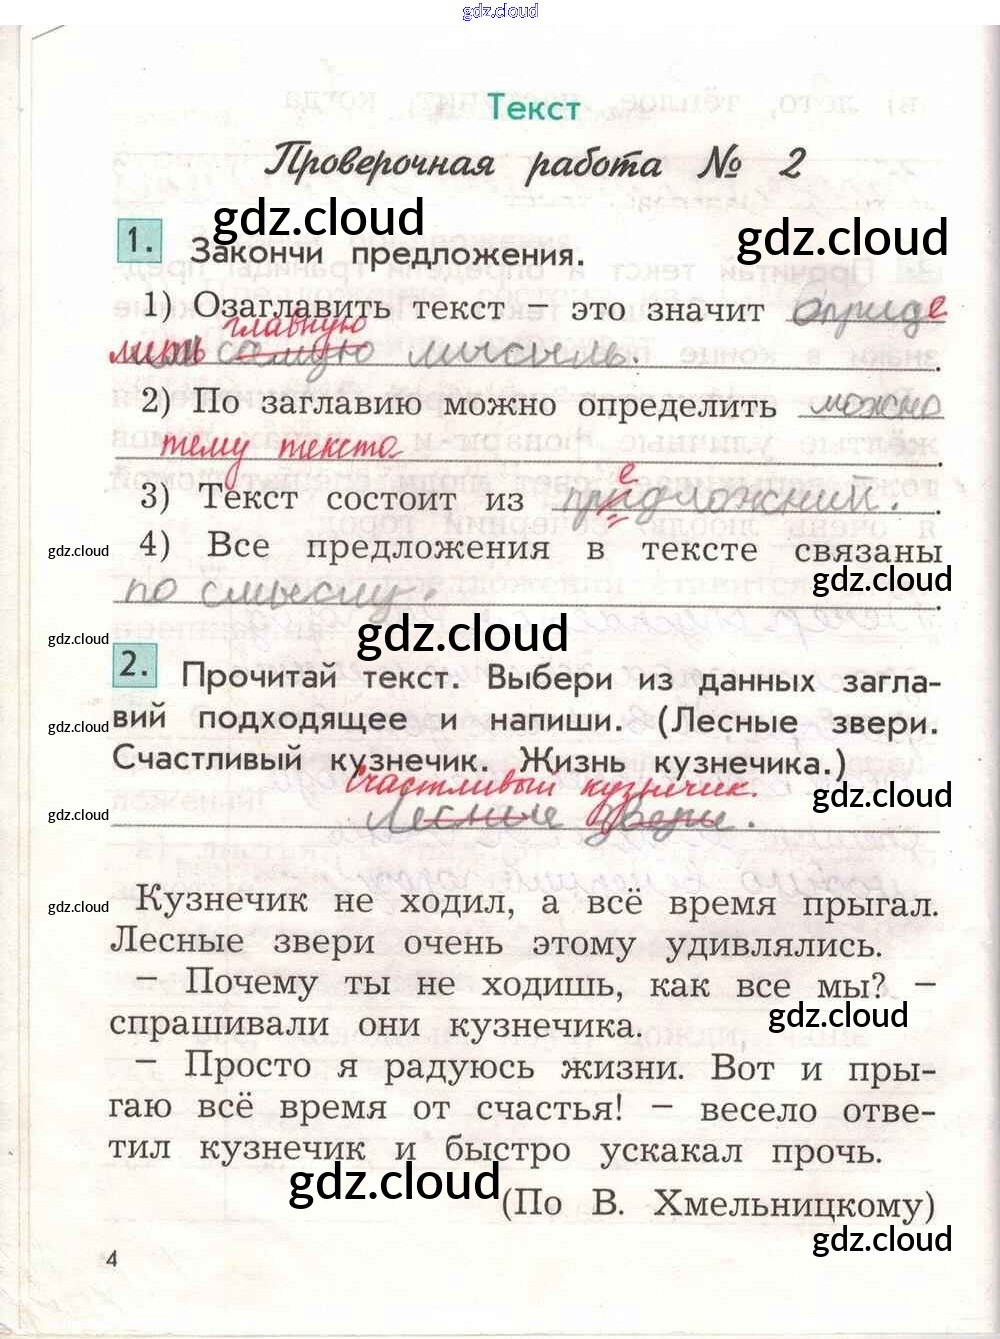 gdz.cloud
Текст
Проверочная работа № 2
gdz.cloud
gdz.cloud
1. Закончи предложения.
1) Озаглавить текст – это значит определ
главную
лить самую мысыль.
2) По заглавию можно определить можно
тему текста
3) Текст состоит из придложений.
е
4) Все предложения в тексте связаны
gdz.cloud
gdz.cloud
по смыслу.
gdz.cloud
gdz.cloud
2. Прочитай текст. Выбери из данных загла-
вий подходящее и напиши. (Лесные звери.
gdz.cloud
Счастливый кузнечик. Жизнь кузнечика.)
Счастливый кузнечик.
gdz.cloud
Лесные звери.
gdz.cloud
Кузнечик не ходил, а всё время прыгал.
gdz.cloud
Лесные звери очень этому удивлялись.
– Почему ты не ходишь, как все мы? –
gdz.cloud
спрашивали они кузнечика.
– Просто я радуюсь жизни. Вот и пры-
гаю всё время от счастья! – весело отве-
тил кузнечик и быстро ускакал прочь.
gdz.cloud
(По В. Хмельницкому)
gdz.cloud
4